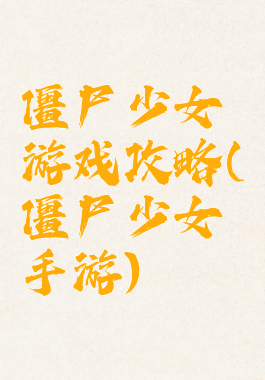 僵尸少女
游戏攻略(
僵尸少女
手游)